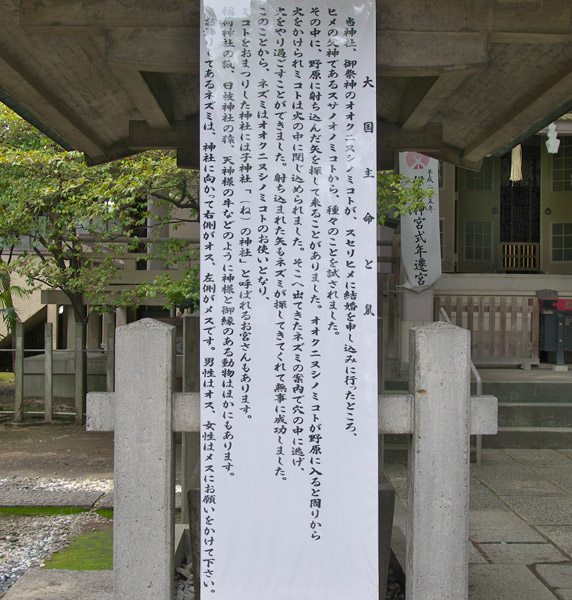 大国主命と鼠
当神社、御祭神のオオクニヌシノミコトが、スセリヒメに結婚を申し込みに行ったところ、
ヒメの父神であるスサノオノミコトから、種々のことを試されました。
その中に、野原に射ち込んだ矢を探して来ることがありました。オオクニヌシノミコトが野原に入ると周りから
火をかけられミコトは火の中に閉じ込められました。そこへ出てきたネズミの案内で穴の中に逃げ、
火をやり過ごすことができました。射ち込まれた矢もネズミが探してきてくれて無事に成功しました。
このことから、ネズミはオオクニヌシノミコトのお使いとなり、
ミコトをおまつりした神社には子神社「(ね)の神社」と呼ばれるお宮さんもあります。
稲荷神社の狐、日枝神社の猿、天神様の牛などのように神様と御縁のある動物はほかにもあります。
お飾りしてあるネズミは、神社に向かって右側がオス、左側がメスです。男性はオス、女性はメスにお願いをかけて下さい。
平成二十五年
神宮式年遷宮